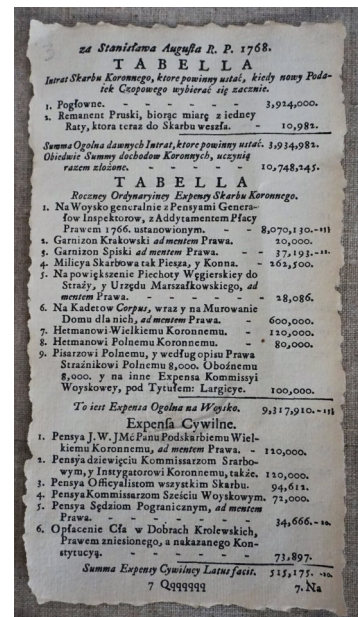 za Stanisława Augusta R. P. 1768.
TABELLA
Intrat Skarbu Koronnego, ktore powinny ustać, kiedy nowy Poda-
tek Czopowego wybierać się zacznie.
1. Pogłowne. - - - - - 3,924,000.
2. Remanent Pruski, biorąc miarę z iedney
Raty, ktora teraz do Skarbu weszła. - 10,982.
Summa Ogolna dawnych Intrat, ktore powinny ustać. 3,934,982.
Obiedwie Summy dochodow Koronnych, uczynią
razem złożone. - - - - 10,748,245.
TABELLA
Roczney Ordynaryiney Expensy Skarbu Koronnego.
1. Na Woysko generalnie z Pensyami Genera-
łow Inspektorow, z Addytamentem Płacy
Prawem 1766. ustanowionym. - - 8,070,130.
2. Garnizon Krakowski ad mentem Prawa. 20,000.
3. Garnizon Spiski ad mentem Prawa. - 37,193.
4. Milicya Skarbowa tak Piesza, y Konna. - 262,500.
5. Na powiększenie Piechoty Węgierskiey do
Straży, y Urzędu Marszałkowskiego, ad
mentem Prawa. - - - - - 28,086.
6. Na Kadetow Corpus, wraz y na Murowanie
Domu dla nich, ad mentem Prawa. - 600,000.
7. Hetmanowi Wielkiemu Koronnemu. - 120,000.
8. Hetmanowi Polnemu Koronnemu. - 80,000.
9. Pisarzowi Polnemu, y według opisu Prawa
Strażnikowi Polnemu 8,000. Oboźnemu
8,000. y na inne Expensa Kommissyi
Woyskowey, pod Tytułem: Largicye. 100,000.
To iest Expensa Ogolna na Woysko. 9,317,910.
Expensa Cywilne.
1. Pensya J. W. JMć Panu Podskarbiemu Wiel-
kiemu Koronnemu, ad mentem Prawa. - 120,000.
2. Pensya dziewięciu Kommissarzom Skarbo-
wym, y Instygatorowi Koronnemu, także. 120,000.
3. Pensya Officyalistom wszystkim Skarbu. 94,612.
4. Pensya Kommissarzom Sześciu Woyskowym. 72,000.
5. Pensya Sędziom Pogranicznym, ad mentem
Prawa. - - - - - 34,666.
6. Opłacenie Cła w Dobrach Krolewskich,
Prawem zniesionego, a nakazanego Kon-
stytucyą. - - - - - 73,897.
Summa Expensy Cywilney Latus facit. 515,175.
7 Qqqqqqq 7. Na